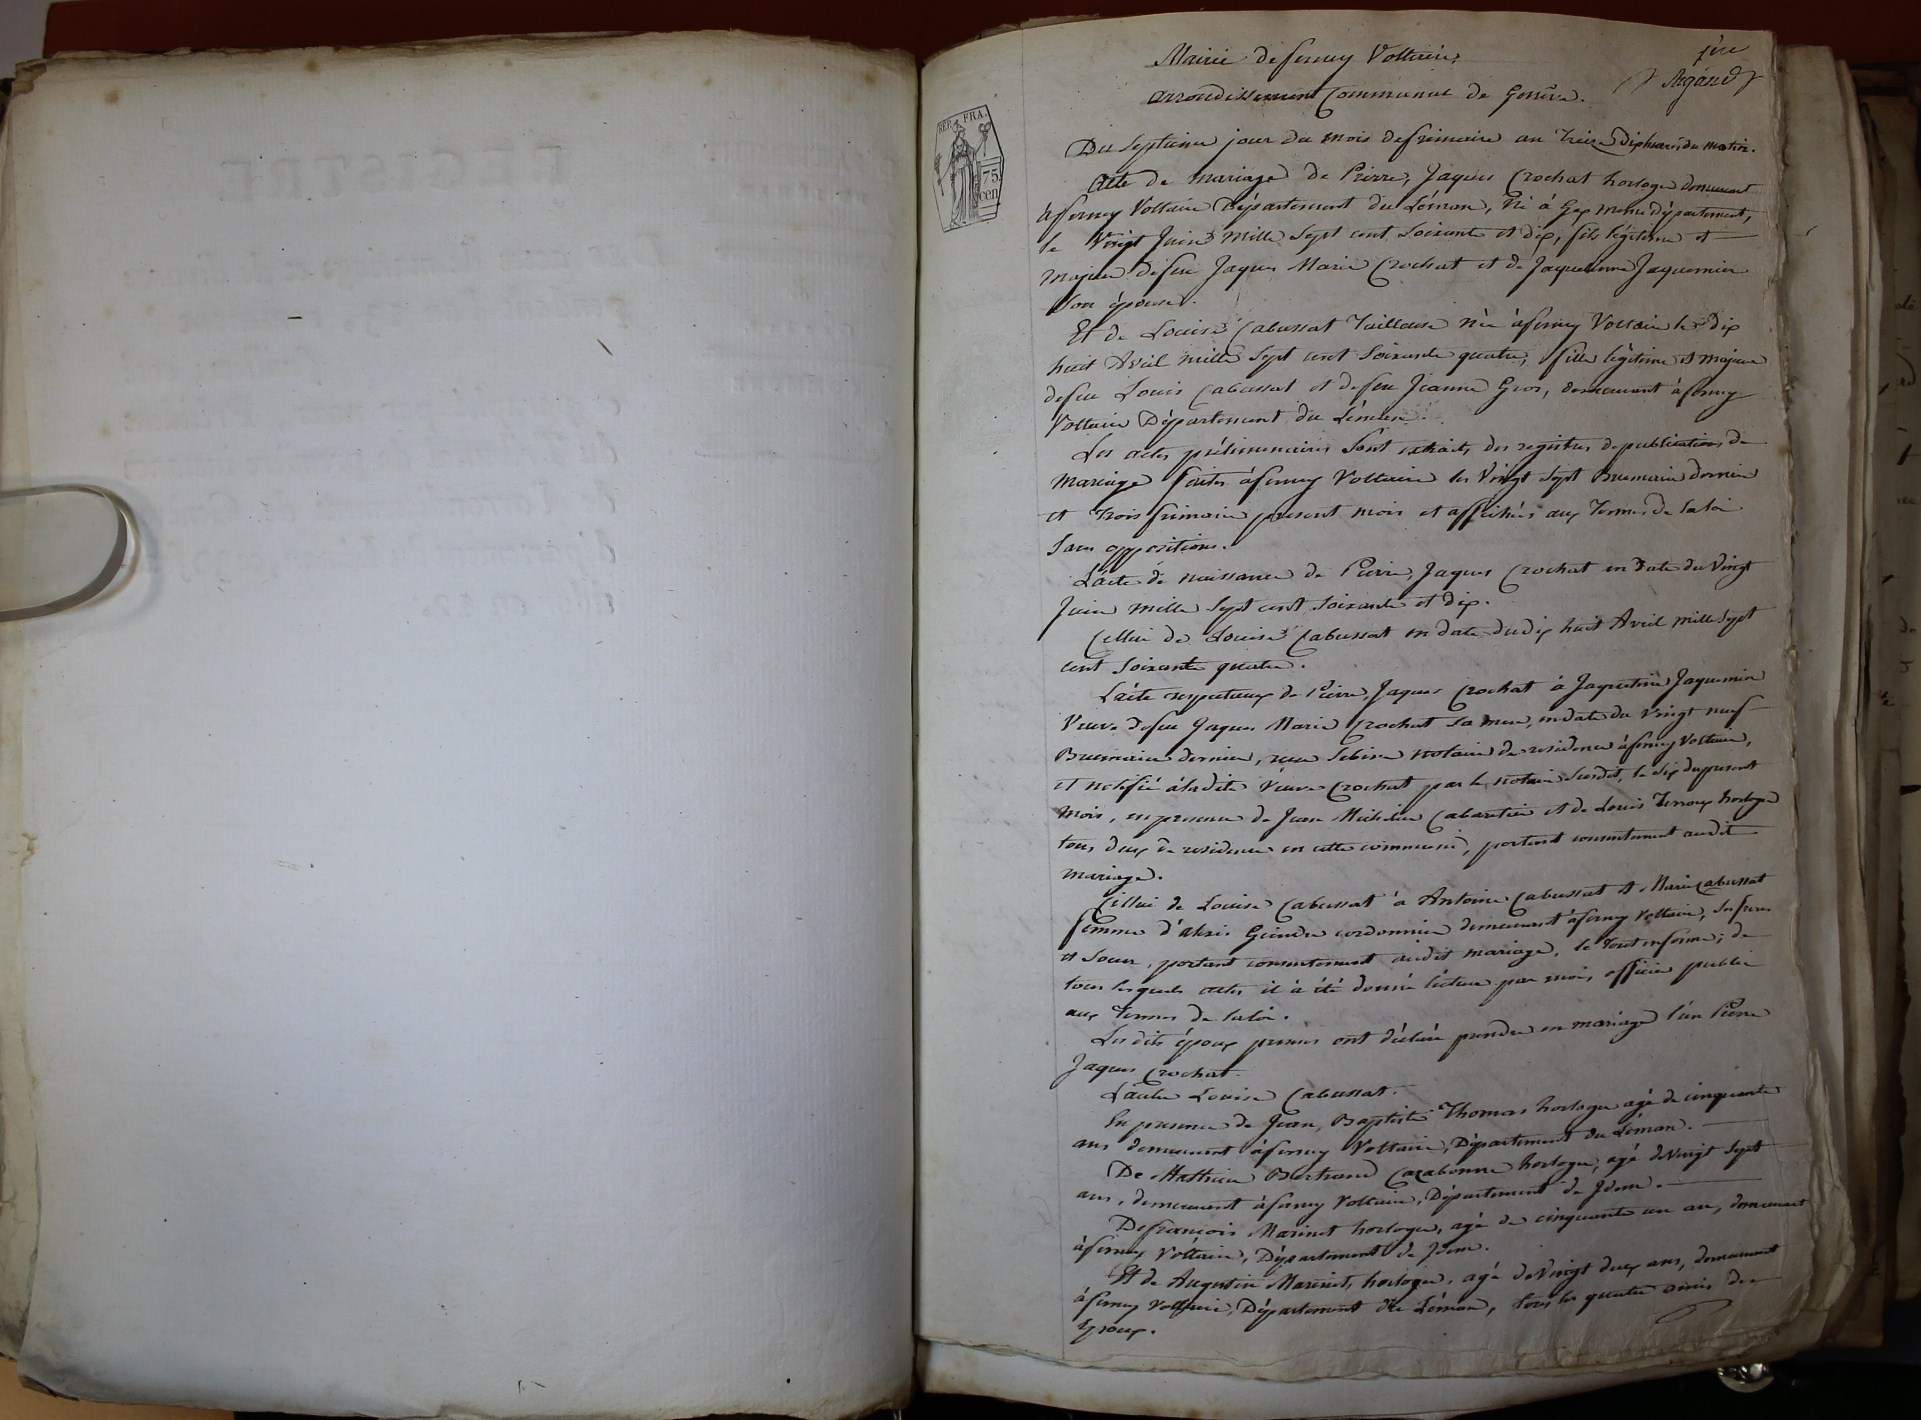 Mairie de ferney Voltaire,
1ère
Arrondissement Communal de Genève.
REP. FRA.
75
cen
Du Septieme jour du mois de frimaire an treize dix heures du matin.
Acte de mariage de Pierre, Jaques Crochat horloger demeurant
à ferney Voltaire Département du Léman, Né à Gex même département,
le Vingt Juin Mille Sept cent Soixante et dix, fils légitime et
majeur de feu Jaques Marie Crochat et de Jaqueline Jaquemier
Son épouse.
Et de Louise Cabussat Tailleuse née à ferney Voltaire le Dix
huit Avril mille Sept cent Soixante quatre, fille légitime et majeure
de feu Louis Cabussat et de feu Jeanne Gros, demeurant à ferney
Voltaire Département du Léman.
Les actes préliminaires Sont extraits des registres de publications de
Mariage faites à ferney Voltaire les Vingt Sept Brumaire dernier
et trois frimaire present mois et affichés aux termes de la loi
Sans oppositions.
L'acte de naissance de Pierre, Jaques Crochat en date du Vingt
Juin mille Sept cent Soixante et dix.
Cellui de Louise Cabussat en date du dix huit Avril mille Sept
cent Soixante quatre.
L'acte respectueux de Pierre, Jaques Crochat à Jaqueline Jaquemier
Veuve de feu Jaques Marie Crochat Sa mere, en date du Vingt neuf
Brumaire dernier, notaire de residence à ferney Voltaire,
et notifié à ladite Veuve Crochat par le notaire Susdit, le Six du present
mois, en presence de Jean Cabaretier et de Louis horloger
tous deux de residence en cette commune, portant consentement audit
mariage.
Cellui de Louise Cabussat à Antoine Cabussat et Marie Cabussat
femme d'Alexis cordonnier demeurant à ferney Voltaire, Ses frere
et Soeur, portant consentement audit mariage, le tout en forme; de
tous lesquels actes il à été donné lecture par moi, officier public
aux termes de la loi.
Les dits époux presens ont déclaré prendre en mariage l'un Pierre
Jaques Crochat.
L'autre Louise Cabussat.
En presence de Jean, Baptiste Thomas horloger agé de cinquante
ans demeurant à ferney Voltaire, Département du Léman.
De Mathieu Bertrand horloger, agé de Vingt Sept
ans, demeurant à ferney Voltaire, Département de Idem.
De françois Marinet horloger, agé de cinquante un an, demeurant
à ferney Voltaire, Département de Idem.
Et de Augustin Marinet, horloger, agé de Vingt deux ans, demeurant
à ferney Voltaire, Département du Léman, tous les quatre amis des
Epoux.